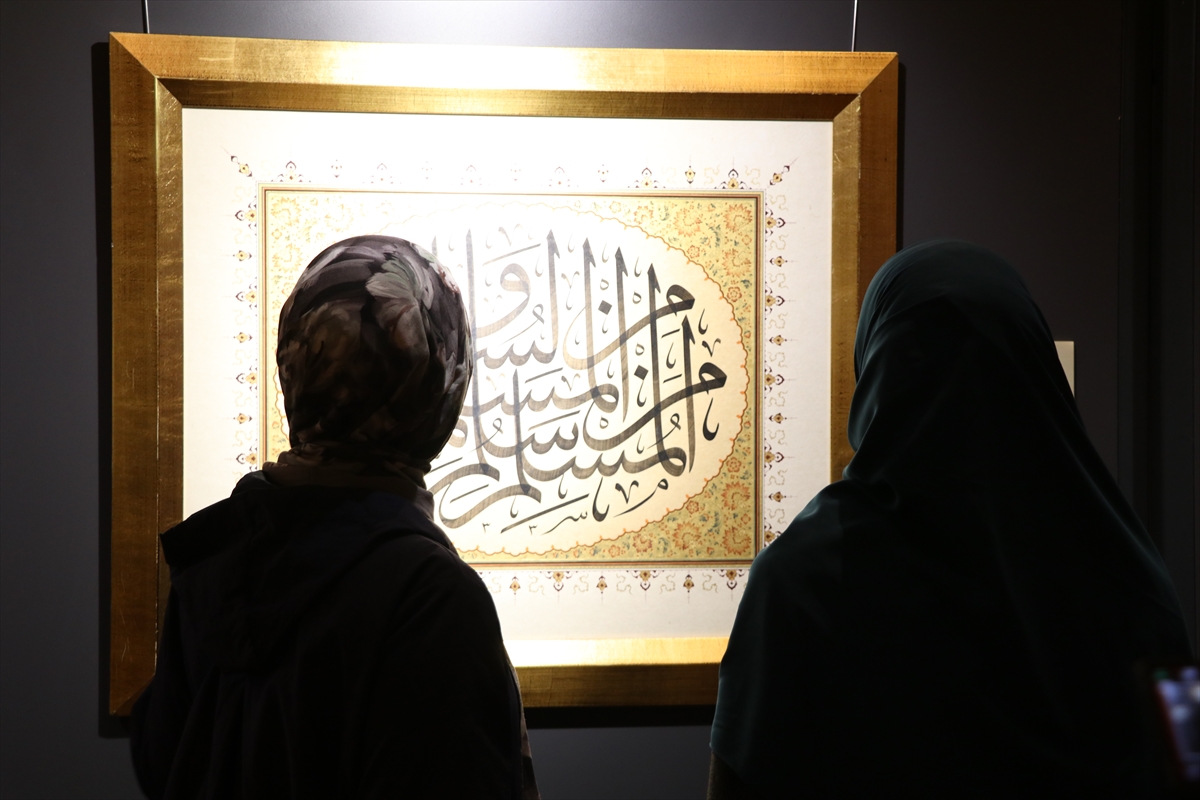 المسلم من سلم
المسلمون من لسانه و